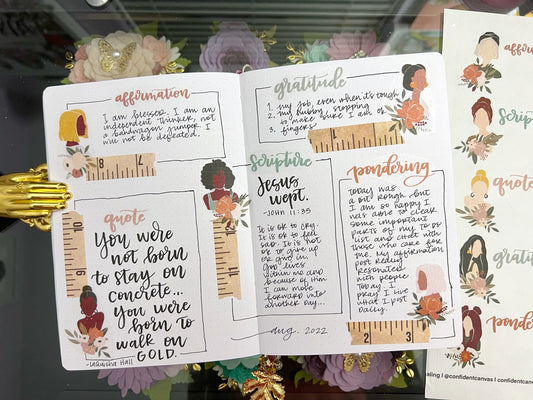 affirmation
I am blessed. I am an
independent thinker, not
a bandwagon jumper. I
will not be defeated.
8 7
quote
10
9
You were
not born
to stay on
concrete...
You were
born to
walk on
GOLD.
Hall
gratitude
1. my job, even when it's tough
2. my hubby, stopping
to make sure I am ok
3. fingers
scripture
Jesus
wept.
-JOHN 11:35
It is ok to cry.
It is ok to feel
sad. It is not
ok to give up
or give in.
God lives
within me and
because of Him
I can move
forward into
another day...
11
aug. 2022
pondering
Today was
a bit rough, but
I am so happy I
was able to clear
some important
parts of my to do
list and chat with
those who care for
me. My affirmation
post really
resonated
with people
today. I
pray I live
what I post
daily.
2 3
affirma
Script
quote
gratit
ponder
ealing | @confidentcanvas | confidentcanvas